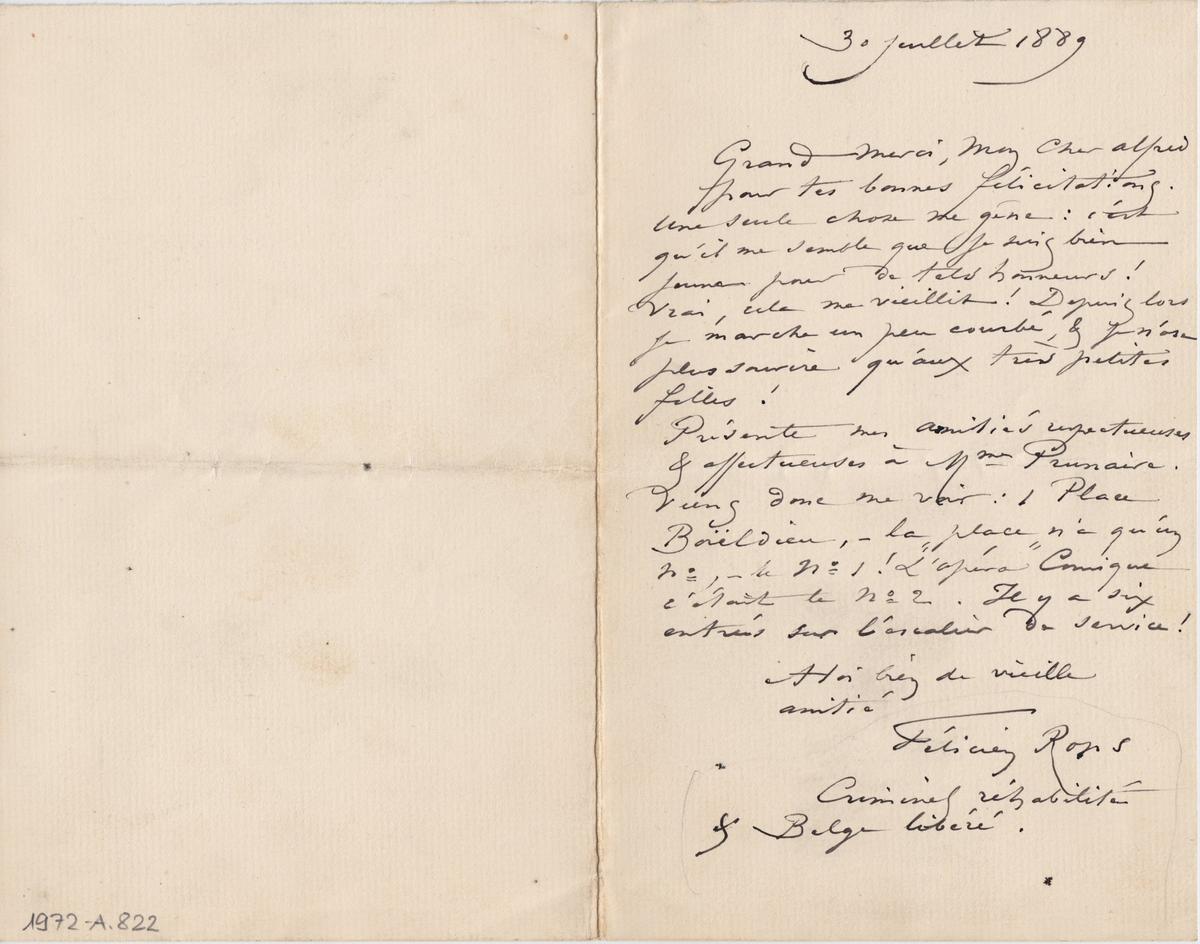 30 juillet 1889
Grand merci, mon cher alfred
pour tes bonnes félicitations.
Une seule chose me gêne : c'est
qu'il me semble que je suis bien
jeune pour de tels honneurs !
Vrai, cela me vieillit ! Depuis lors
je marche un peu courbé, & je n'ose
plus sourire qu'aux très petites
filles !
Présente mes amitiés respectueuses
& affectueuses à Mme Prunaire.
Viens donc me voir : 1 Place
Boïeldieu, – la „place" n'a qu'un
No, – le No 1 ! L'opéra Comique
c'était le No 2. Il y a six
entrées sur l'escalier de service !
A toi bien de vieille
amitié
Félicien Rops
Criminel réhabilité
& Belge libéré.
1972-A.822